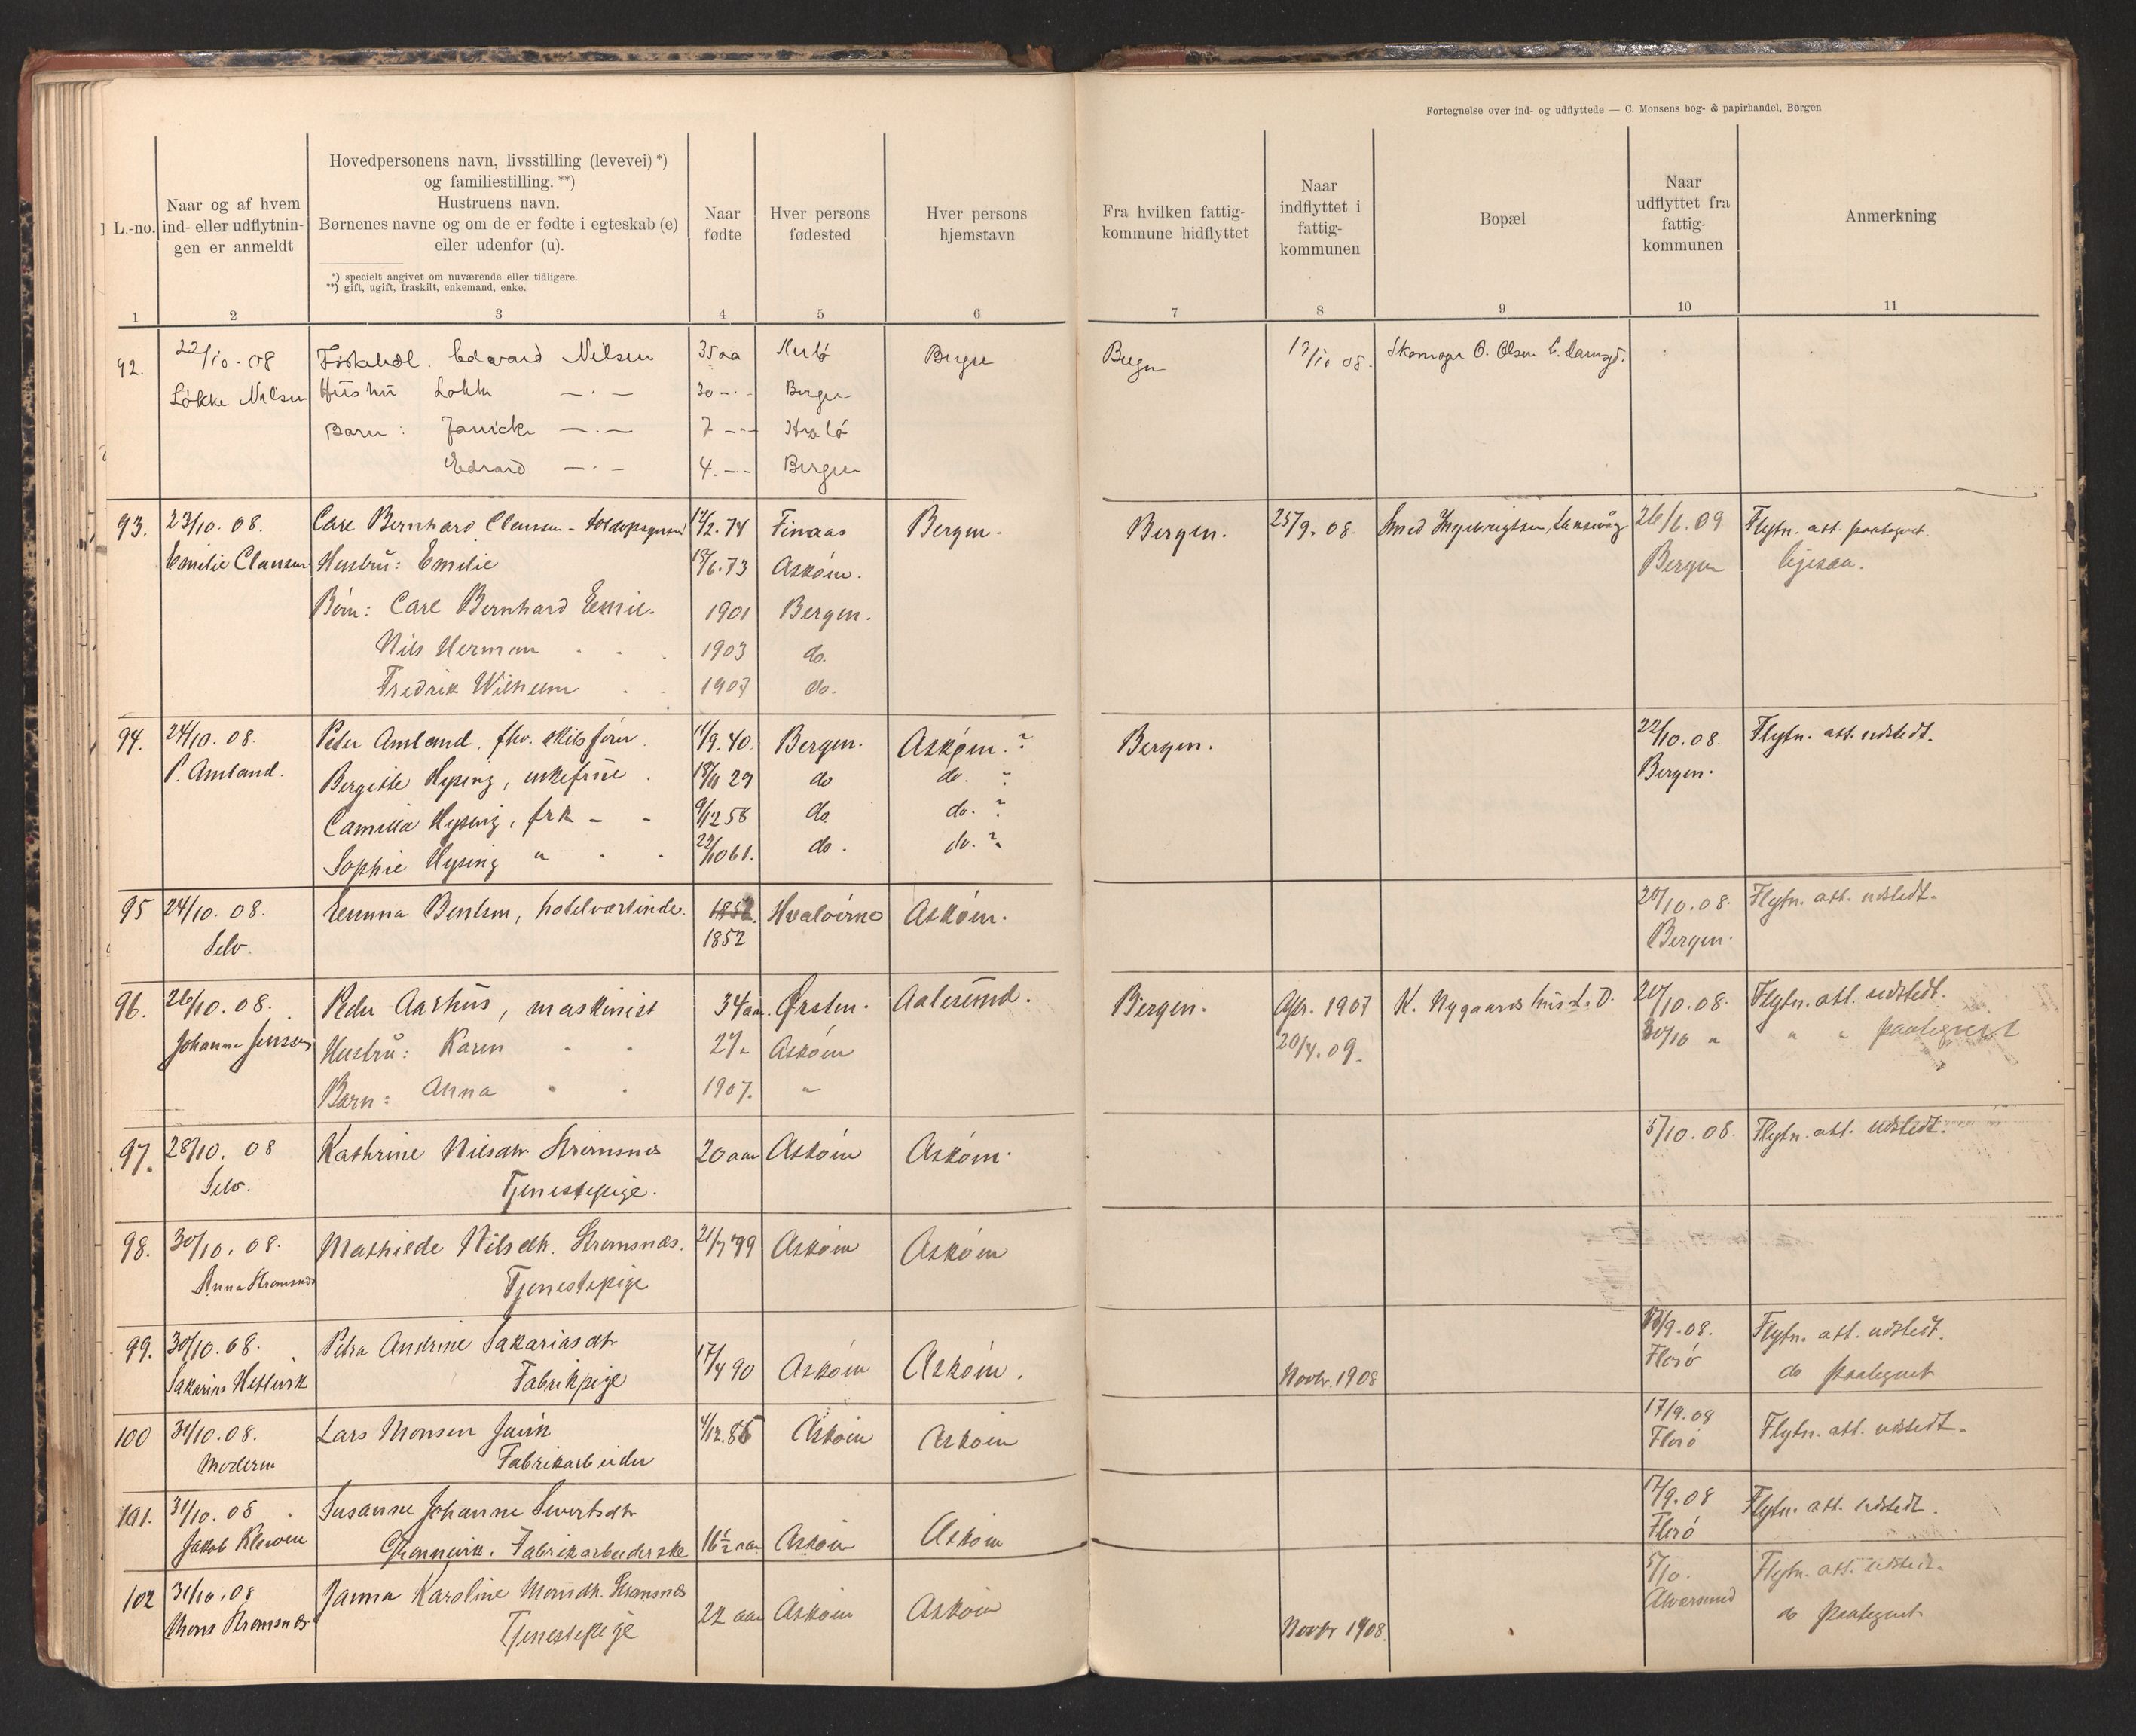 Fortegnelse over ind- og udflyttede — C. Monsens bog- & papirhandel, Bergen
L.-no.
Naar og af hvem
ind- eller udflytnin-
gen er anmeldt
Hovedpersonens navn, livsstilling (levevei) *)
og familiestilling. **)
Hustruens navn.
Børnenes navne og om de er fødte i egteskab (e)
eller udenfor (u).
*) specielt angivet om nuværende eller tidligere.
**) gift, ugift, fraskilt, enkemand, enke.
Naar
fødte
Hver persons
fødested
Hver persons
hjemstavn
Fra hvilken fattig-
kommune hidflyttet
Naar
indflyttet i
fattig-
kommunen
Bopæl
Naar
udflyttet fra
fattig-
kommunen
Anmerkning
1 2 3 4 5 6 7 8 9 10 11
92. 22/10 - 08 Edvard Nilsen 35 aa Herlö Bergen Bergen 08. O. Olsen
Løkke Nilsen Hustru 30 -"- Bergen
Barn : Janicke —"— 7 -"-
Edvard —"— 4. -"- Bergen
93. 23/10. 08. Carl Bernhard Clausen - 74 Finaas Bergen. Bergen. 25/9. 08. Smed 26/6. 09 Flytn. att. paategnet.
Emilie Clausen Hustru: Emilie 6.73 Asköin. Bergen ligesaa.
Börn: Carl Bernhard Emil. 1901 Bergen.
Nils Herman 1903 do.
Fredrik Wilhelm 1907 do.
94. 24/10. 08. Peder Amland, fhv. skibsförer. 11/9. 40. Bergen. Asköin. ? Bergen. 22/10. 08. Flytn. att. udstedt.
P. Amland. Bergitte Hysing, enkefrue. 29 do do. ? Bergen.
Camilla Hysing, frk - - 9/12 58 do do. ?
Sophie Hysing " 22/10 61. do. do. ?
95 24/10. 08. Emma Bentsen, hotelværtinde. Asköin. 20/10. 08. Flytn. att. udstedt.
Selv. 1852 Bergen.
96. 26/10. 08. Peder Aarhus, maskinist 34 aar. Ørsten. Aalesund. Bergen. 1907 K. Nygaards hus 20/10. 08. Flytn. att. udstedt.
Johanne Jenssen Hustru: Karen 27 " Asköin 20/4. 09. 30/10 " " " paategnet
Barn: Anna 1907. "
97. 28/10. 08 Kathrine Nilsdtr. Strömsnes 20 aar Asköin Asköin. 5/10. 08. Flytn. att. udstedt.
Selv. Tjenestepige.
98. 30/10. 08. Mathilde Nilsdtr. Strömsnæs. Asköin Asköin
Anna Strömsnæs Tjenestepige
99. 30/10. 08. Petra Andrine Sakariasdtr 17/4 90 Asköin Asköin. /9. 08. Flytn. att. udstedt.
Sakarias Fabrikpige Novbr. 1908 Florö do paategnet
100 31/10. 08. Lars Monsen Asköin Asköin 17/9. 08 Flytn. att. udstedt.
Moderen Fabrikarbeider Florö
101. 31/10. 08 Susanne Johanne Sivertsdtr 17/9. 08 Flytn. att. udstedt.
Jakob Fabrikarbeiderske 16½ aar Asköin Asköin Florö
102 31/10. 08 Janna Karoline Monsdtr. Strömsnes 22 aar Asköin Asköin 5/10. Flytn. att. udstedt.
Mons Strömsnes Tjenestepige Novbr 1908. Alversund do paategnet